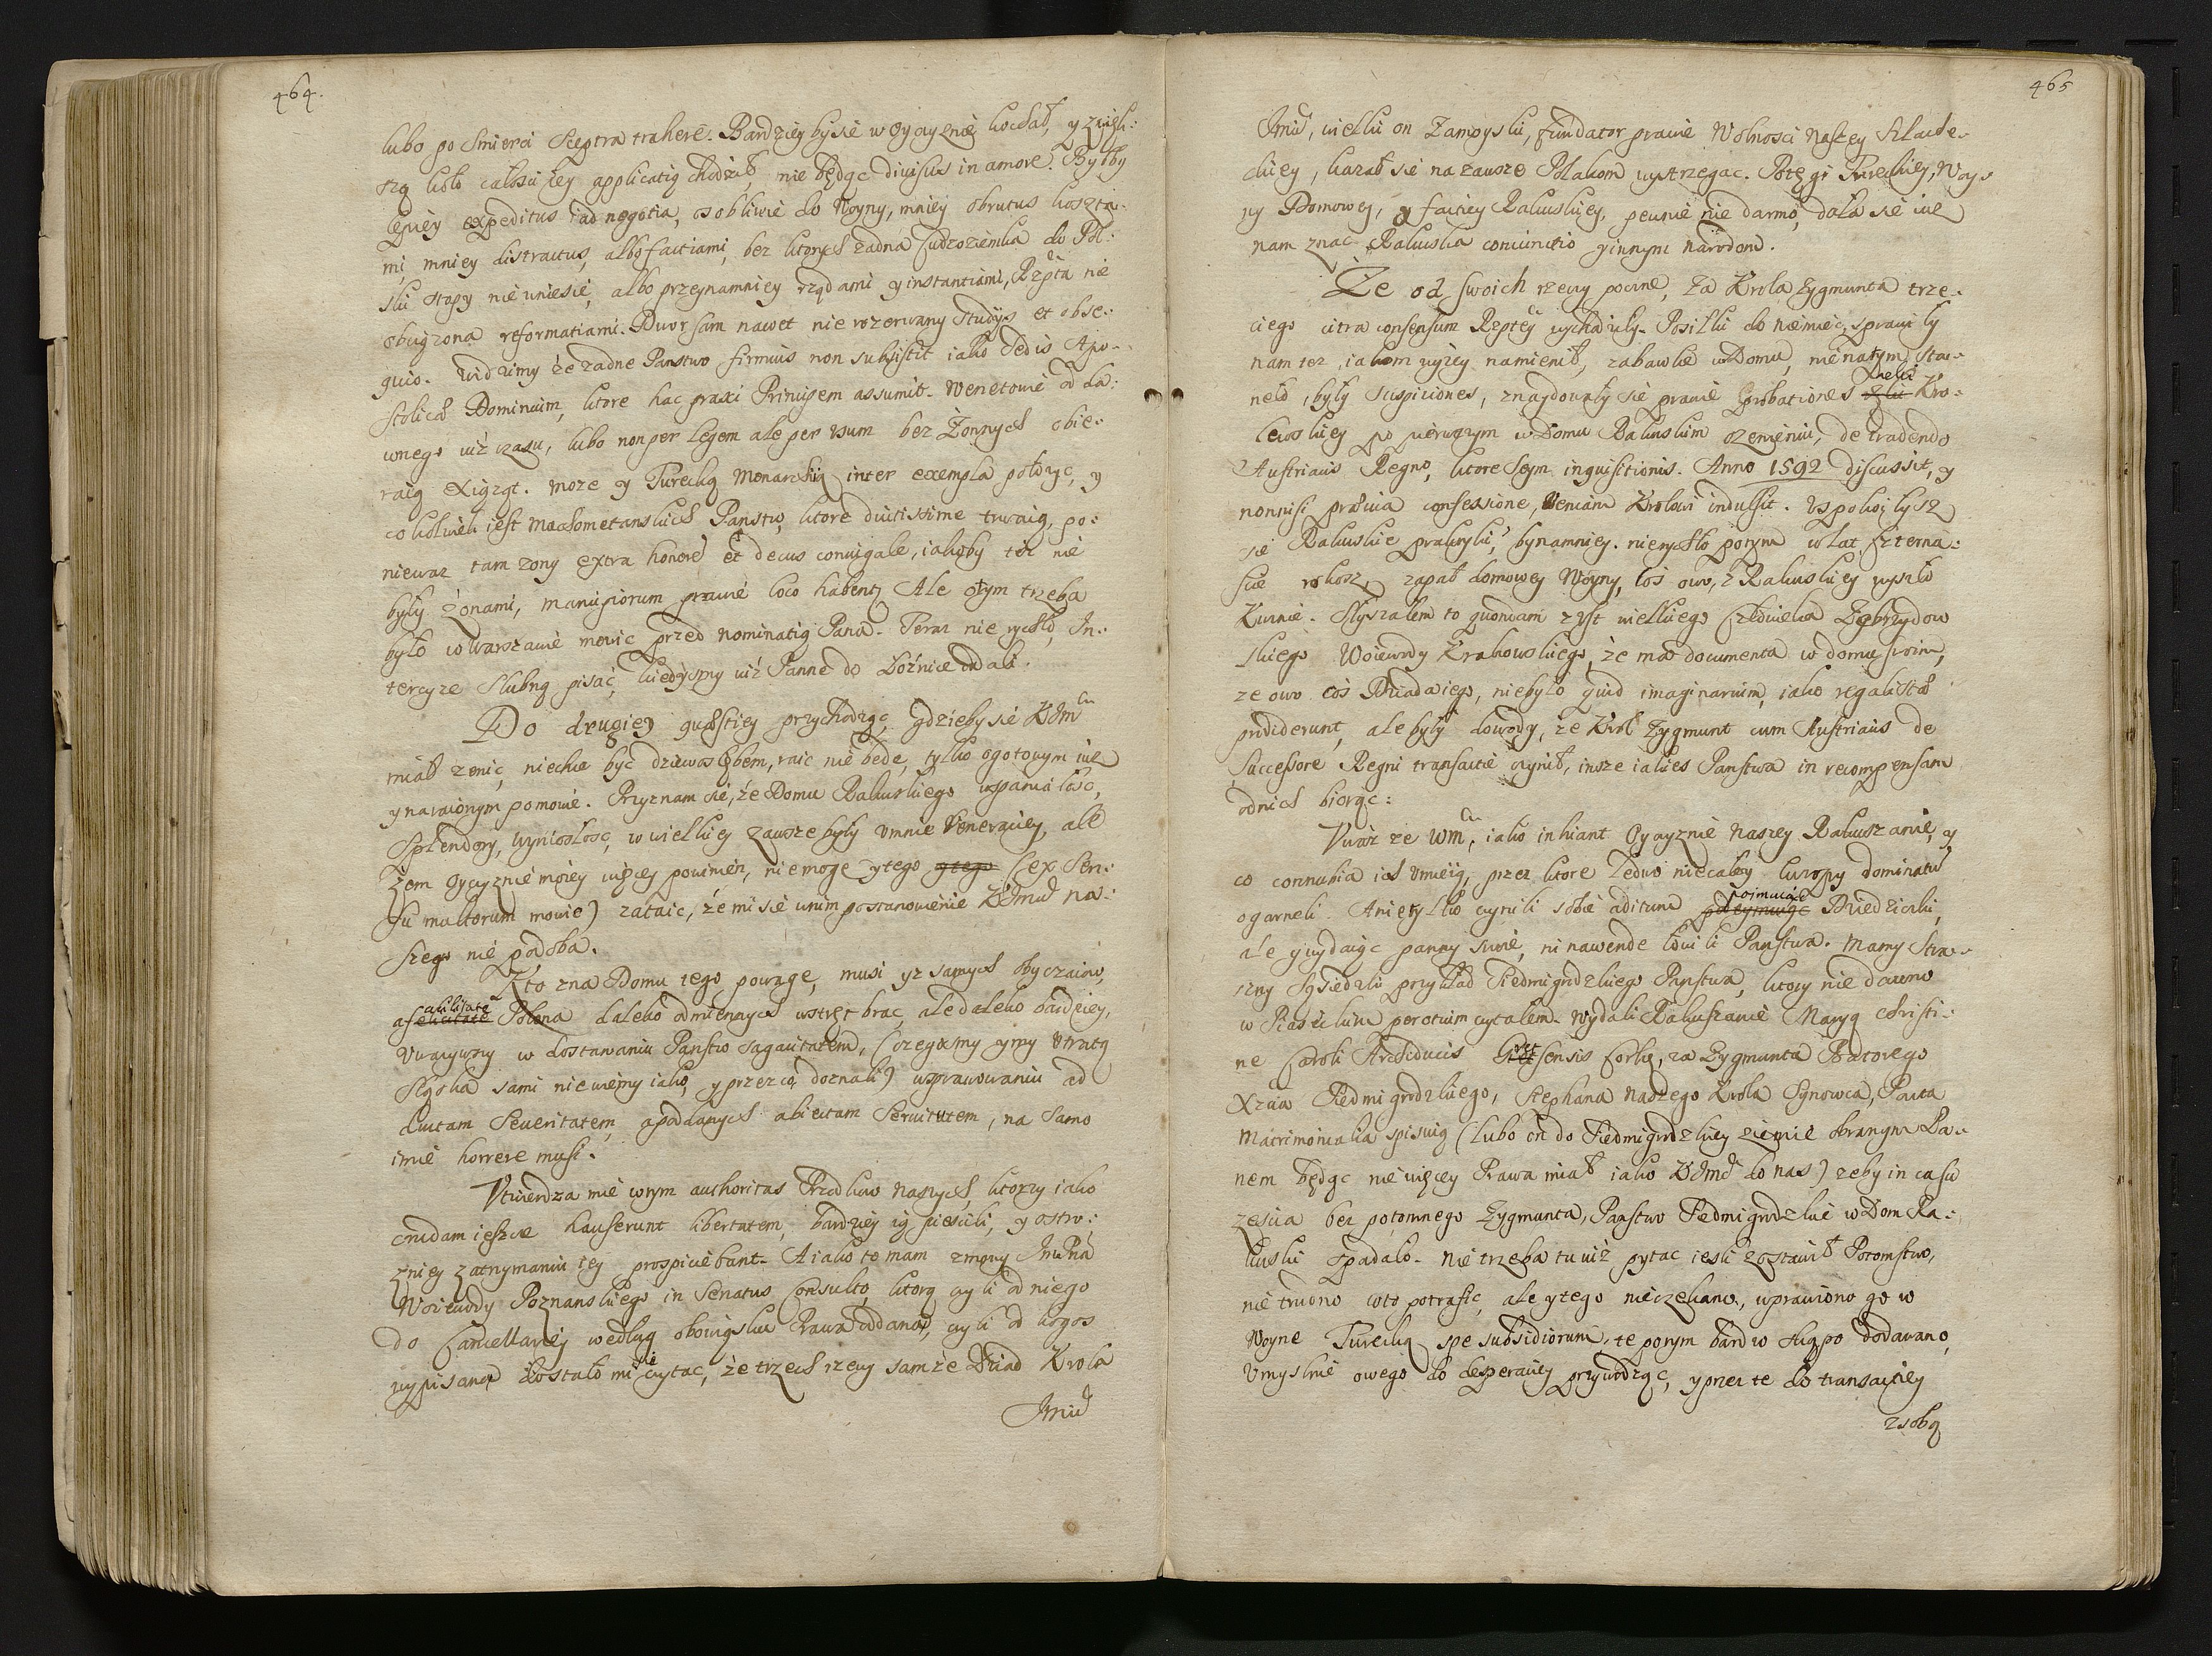 464.
lubo po Smierci Sceptra trahere. Bardziey by się w Oyczyznie kochał, y zwięk:
szą koło całosci iey applicatią chodził, nie będąc divisus in amore. Byłby
lepiey expeditus ad negotia, osobliwie do Woyny, mniey obrutus koszta-
mi, mniey distractus, albo factiami, bez ktorych zadna Cudzoziemka do Pol:
ski stopy nie uniesie, albo przynamniey rządami y instantiami, Rzpta nie
obciązona reformatiami. Dwor sam nawet nie rozerwany Studijs et obse-
quio. Vidzimy że zadne Panstwo firmius non subsistit iako Sedis Apo-
stolicæ Dominium, ktore hac praxi Principem assumit. Wenetowie od da:
wnego iuż czasu, lubo non per legem ale per usum bez Żonnych obie:
raią Xiążąt. Moze y Turecką Monarchią inter exempla połozyc, y
co kolwiek iest Machometanskich Panstw, ktore diutissime trwaią, po:
niewaz tam zony extra honorē et decus coniugale, iakoby też nie
były żonami, mancipiorum prawie loco habent. Ale o tym trzeba
było w Warszawie mowic przed nominatią Pana. Teraz nie rychło, In:
tercyze Slubną pisać, kiedysmy iuż Panne do Łożnice oddali.
Do drugiey quæstiey przychodząc, gdzieby się KJmc
miał zenic, niechcę być dziewosłębem, raic nie bede, tylko o gotowym iuz
y naraionym pomowie. Przyznam się, że Domu Rakuskiego wspaniałosc,
Splendory, wyniosłosc, w wielkiey zawsze były u mnie Veneraciey, ale
żem Oyczyznie moiey więcey powinien, nie moge y tego y tego (ex Sen:
su multorum mowie) zataic, że mi się w nim postanowienie KJmci na:
szego nie podoba.
Kto zna Domu tego powage, musi y z samych obyczaiow,
a facilitate Polona daleko odmiennych wstręt brac, ale daleko bardziey,
Vwazywszy w dostawaniu Panstw sagacitatem, (czegosmy y my utratą
Sląska sami nie wiemy iako, y przez co doznali) w sprawowaniu ad
ductam Severitatem, a poddanych abiectam Servitutem, na samo
imie horrere musi.
Vtwierdza mie w tym authoritas Przodkow naszych, ktorzy iako
crudam ieszcze hauserunt libertatem, bardziey ią piescili, y ostro:
zniey zatrzymaniu iey prospiciebant. A iako to mam z mowy Jmc Pana
Woiewody Poznanskiego in Senatus Consulto, ktorą czyli od niego
do Cancellariey według obowiązku Prawa oddaną, czyli od kogos
wypisaną dostało mi się czytac, że trzech rzeczy samże Dziad Krola
Jmci
465
Jmci, wielki on Zamoyski, fundator prawie Wolnosci Naszey Szlache-
ckiey, kazał się na zawsze Polakom wystrzegac. Potęgi Tureckiey, Woy-
ny Domowey, y factiey Rakuskiey. pewnie nie darmo, dała się iuz
nam znac Rakuska coniunctio y innym narodom.
Że od swoich rzeczy poczne, Za Krola Zygmunta trze-
ciego citra consensum Rzptey wychodziły. Posiłki do Niemiec, sprawiły
nam tez, iakom wyzey namienił, zabawke w Domu, nie na tym sta-
neło, były suspiciones, znaydowały się prawie probationes chęci Kro-
lewskiey po pierwszym w Domu Rakuskim ozenieniu, de tradendo
Austriacis Regno, ktore Seym inquisitionis. Anno 1592 discussit, y
nonnisi prævia confessione, Veniam Krolowi indulsit. Vspokoiłysz
się Rakuskie praktyki, bynamniey. nierychło potym w lat szterna:
scie rokosz, zapał domowey Woyny, coś owo, z Rakuskiey wyszło
Kuznie. Słyszałem to quondam z ust wielkiego Człowieka Zebrzydow
skiego Woiewody Krakowskiego, że ma documenta w domu swoim,
ze owo coś Dziada iego, niebyło quid imaginarium, iako regalistæ
prodiderunt, ale były dowody, że Krol Zygmunt cum Austriacis de
Successore Regni transactie czynił, insze iakies Panstwa in recompensam
od nich biorąc:
Vważ ze WM, iako inhiant Oyczyznie naszey Rakuszanie, y
co connubia ich umieią, przez ktore ledwo nie całey Europy dominatu
ogarneli. A nie tylko czynili sobie aditum poymuiąc Dziedziczki,
ale y wydaiąc panny swoie, ni na wende łowili Panstwa. Mamy stra-
szny Sąsiedzki przykład Siedmigrodzkiego Panstwa, ktory nie dawno
w Piaseckim perotium czytalem. Wydali Rakuszanie Maryą Christi:
ne Caroli Archiducis Grætsensis Corkę, za Zygmunta Batorego
Xzcia Siedmigrodzkiego, Stephana naszego Krola Synowca, Pacta
Matrimonialia spisuią (lubo on do Siedmigrodzkiey ziemie obranym Pa-
nem będąc nie więcey Prawa miał iako KJmc do nas) zeby in casu
zescia bez potomnego Zygmunta, Panstwo Siedmigrodzkie w Dom Ra:
kuski spadało. Nie trzeba tu iuż pytac iesli zostawił Potomstwo,
nie trudno w to potrafic, ale y tego nie czekano, wprawiono go w
Woyne Turecką spe subsidiorum, te potym bardzo skąpo dodawano,
Umyslnie owego do desperaciey przywodząc, y przez te do transactiey
z sobą